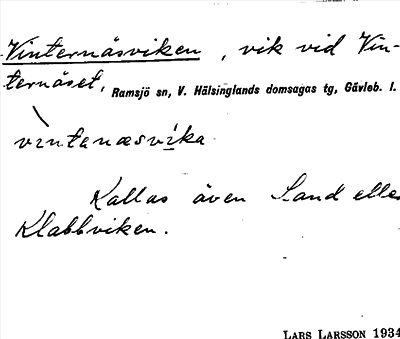 Vinternäsviken, vik vid Vin-
ternäset, Ramsjö sn, V. Hälsinglands domsagas tg, Gävleb. l.
vìntanæsvi̱ka
Kallas även Sand eller
Klabbviken.
LARS LARSSON 1934